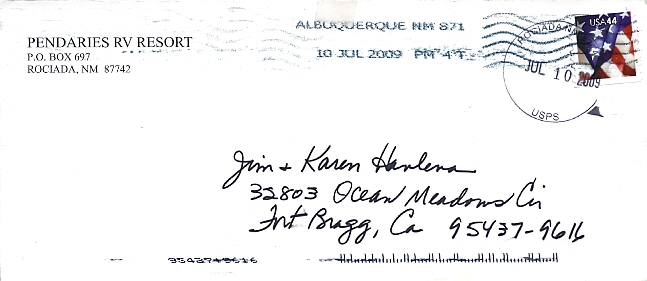 PENDARIES RV RESORT
P.O. BOX 697
ROCIADA, NM 87742
ALBUQUERQUE NM 871
10 JUL 2009 PM 4 T
ROCIADA NM
JUL 10 2009
USPS
USA 44
Jim + Karen Havlena
32803 Ocean Meadows Cir
Fort Bragg, Ca 95437-9616
95437+9616